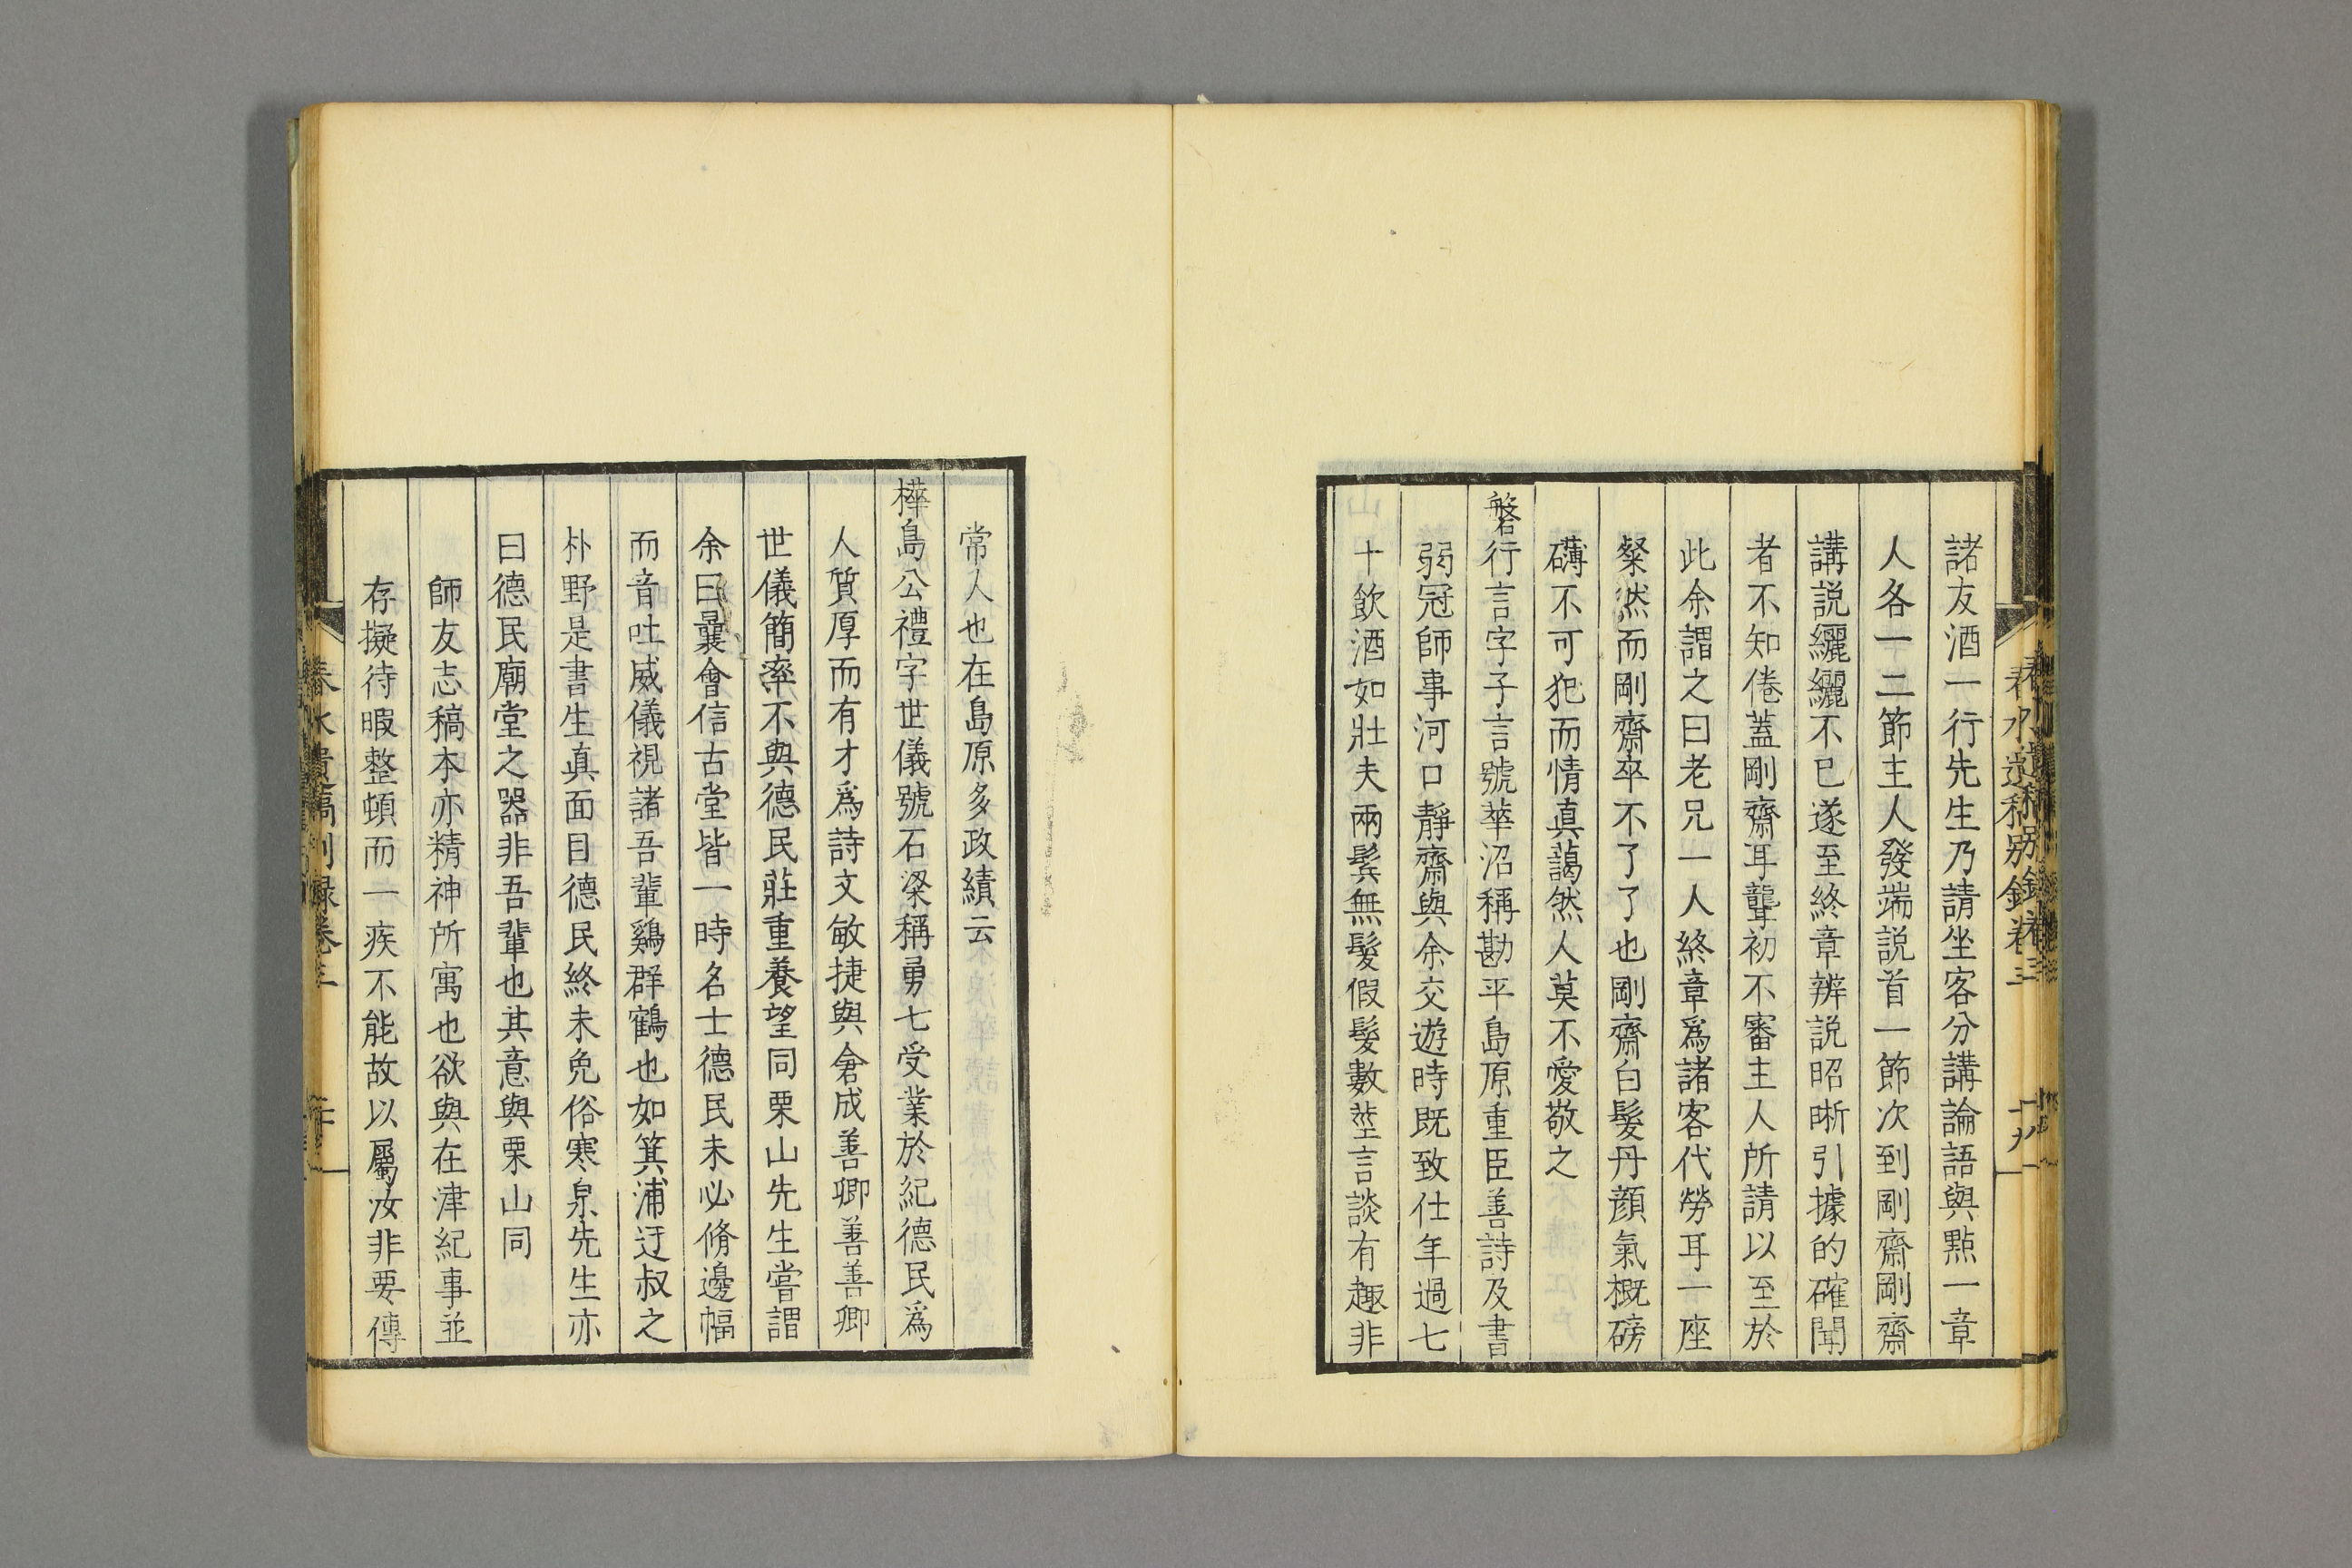 諸友酒一行先生乃請坐客分講論語與點一章
人各一二節主人發端説首一節次到剛齋剛齋
講説纚纚不已遂至終章辨説昭晰引據的確聞
者不知倦蓋剛齋耳聾初不審主人所請以至於
此余謂之曰老兄一人終章爲諸客代勞耳一座
粲然而剛齋卒不了了也剛齋白髮丹顏氣概磅
礴不可犯而情真藹然人莫不愛敬之
磐行言字子言號華沼稱勘平島原重臣善詩及書
弱冠師事河口靜齋與余交遊時既致仕年過七
十飲酒如壯夫兩鬂無髮假髮數莖言談有趣非
春水遺稿別録卷三
十九
常人也在島原多政績云
樺島公禮字世儀號石梁稱勇七受業於紀德民爲
人質厚而有才爲詩文敏捷與倉成善卿善善卿
世儀簡率不與德民莊重養望同栗山先生嘗謂
余曰曩會信古堂皆一時名士德民未必脩邊幅
而音吐威儀視諸吾輩鷄群鶴也如箕浦迂叔之
朴野是書生真面目德民終未免俗寒泉先生亦
曰德民廟堂之器非吾輩也其意與栗山同
師友志稿本亦精神所寓也欲與在津紀事並
存擬待暇整頓而一疾不能故以屬汝非要傳
春水遺稿別録卷三